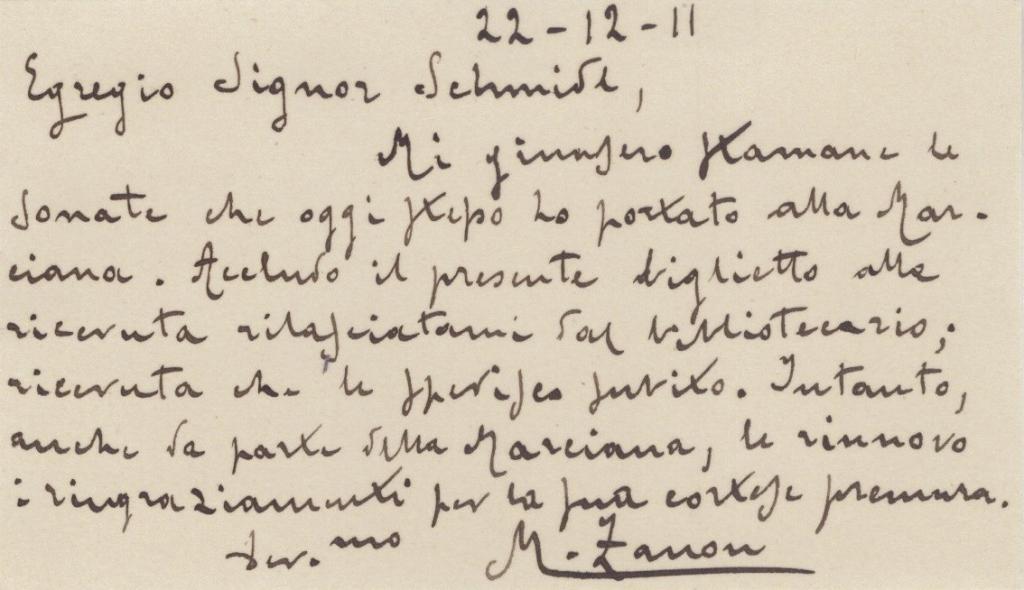 22-12-11
Egregio Signor Schmidl,
Mi giunsero stamane le
sonate che oggi stesso ho portato alla Mar-
ciana. Accludo il presente biglietto alla
ricevuta rilasciatami dal bibliotecario;
ricevuta che le spedisco subito. Intanto,
anche da parte della Marciana, le rinnovo
i ringraziamenti per la sua cortese premura.
dev.mo M. Zanon